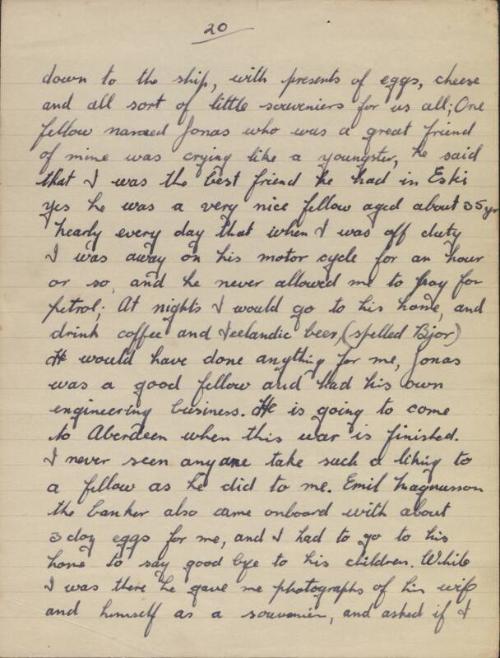 20
down to the ship, with presents of eggs, cheese
and all sort of little souveniers for us all; One
fellow named Jonas who was a great friend
of mine was crying like a youngster, he said
that I was the best friend he had in Eski
yes he was a very nice fellow aged about 35 yr
nearly every day that when I was off duty
I was away on his motor cycle for an hour
or so, and he never allowed me to pay for
petrol; At nights I would go to his home, and
drink coffee and Icelandic beer, (spelled Bjor)
He would have done anything for me, Jonas
was a good fellow and had his own
engineering business. He is going to come
to Aberdeen when this war is finished.
I never seen anyone take such a liking to
a fellow as he did to me. Emil Magnusson
the banker also came onboard with about
3 doz eggs for me, and I had to go to his
home to say good bye to his children. While
I was there he gave me photographs of his wife
and himself as a souvenier, and asked if I